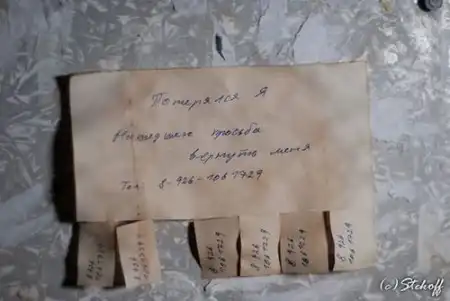 Потерялся Я
Нашедшего просьба
вернуть меня
Тел. 8-926-106 1729
8 926
106 1729
8 926
106 1729
8 926
106 1729
8 926
106 1729
8 926
106 1729
(c) Stekoff